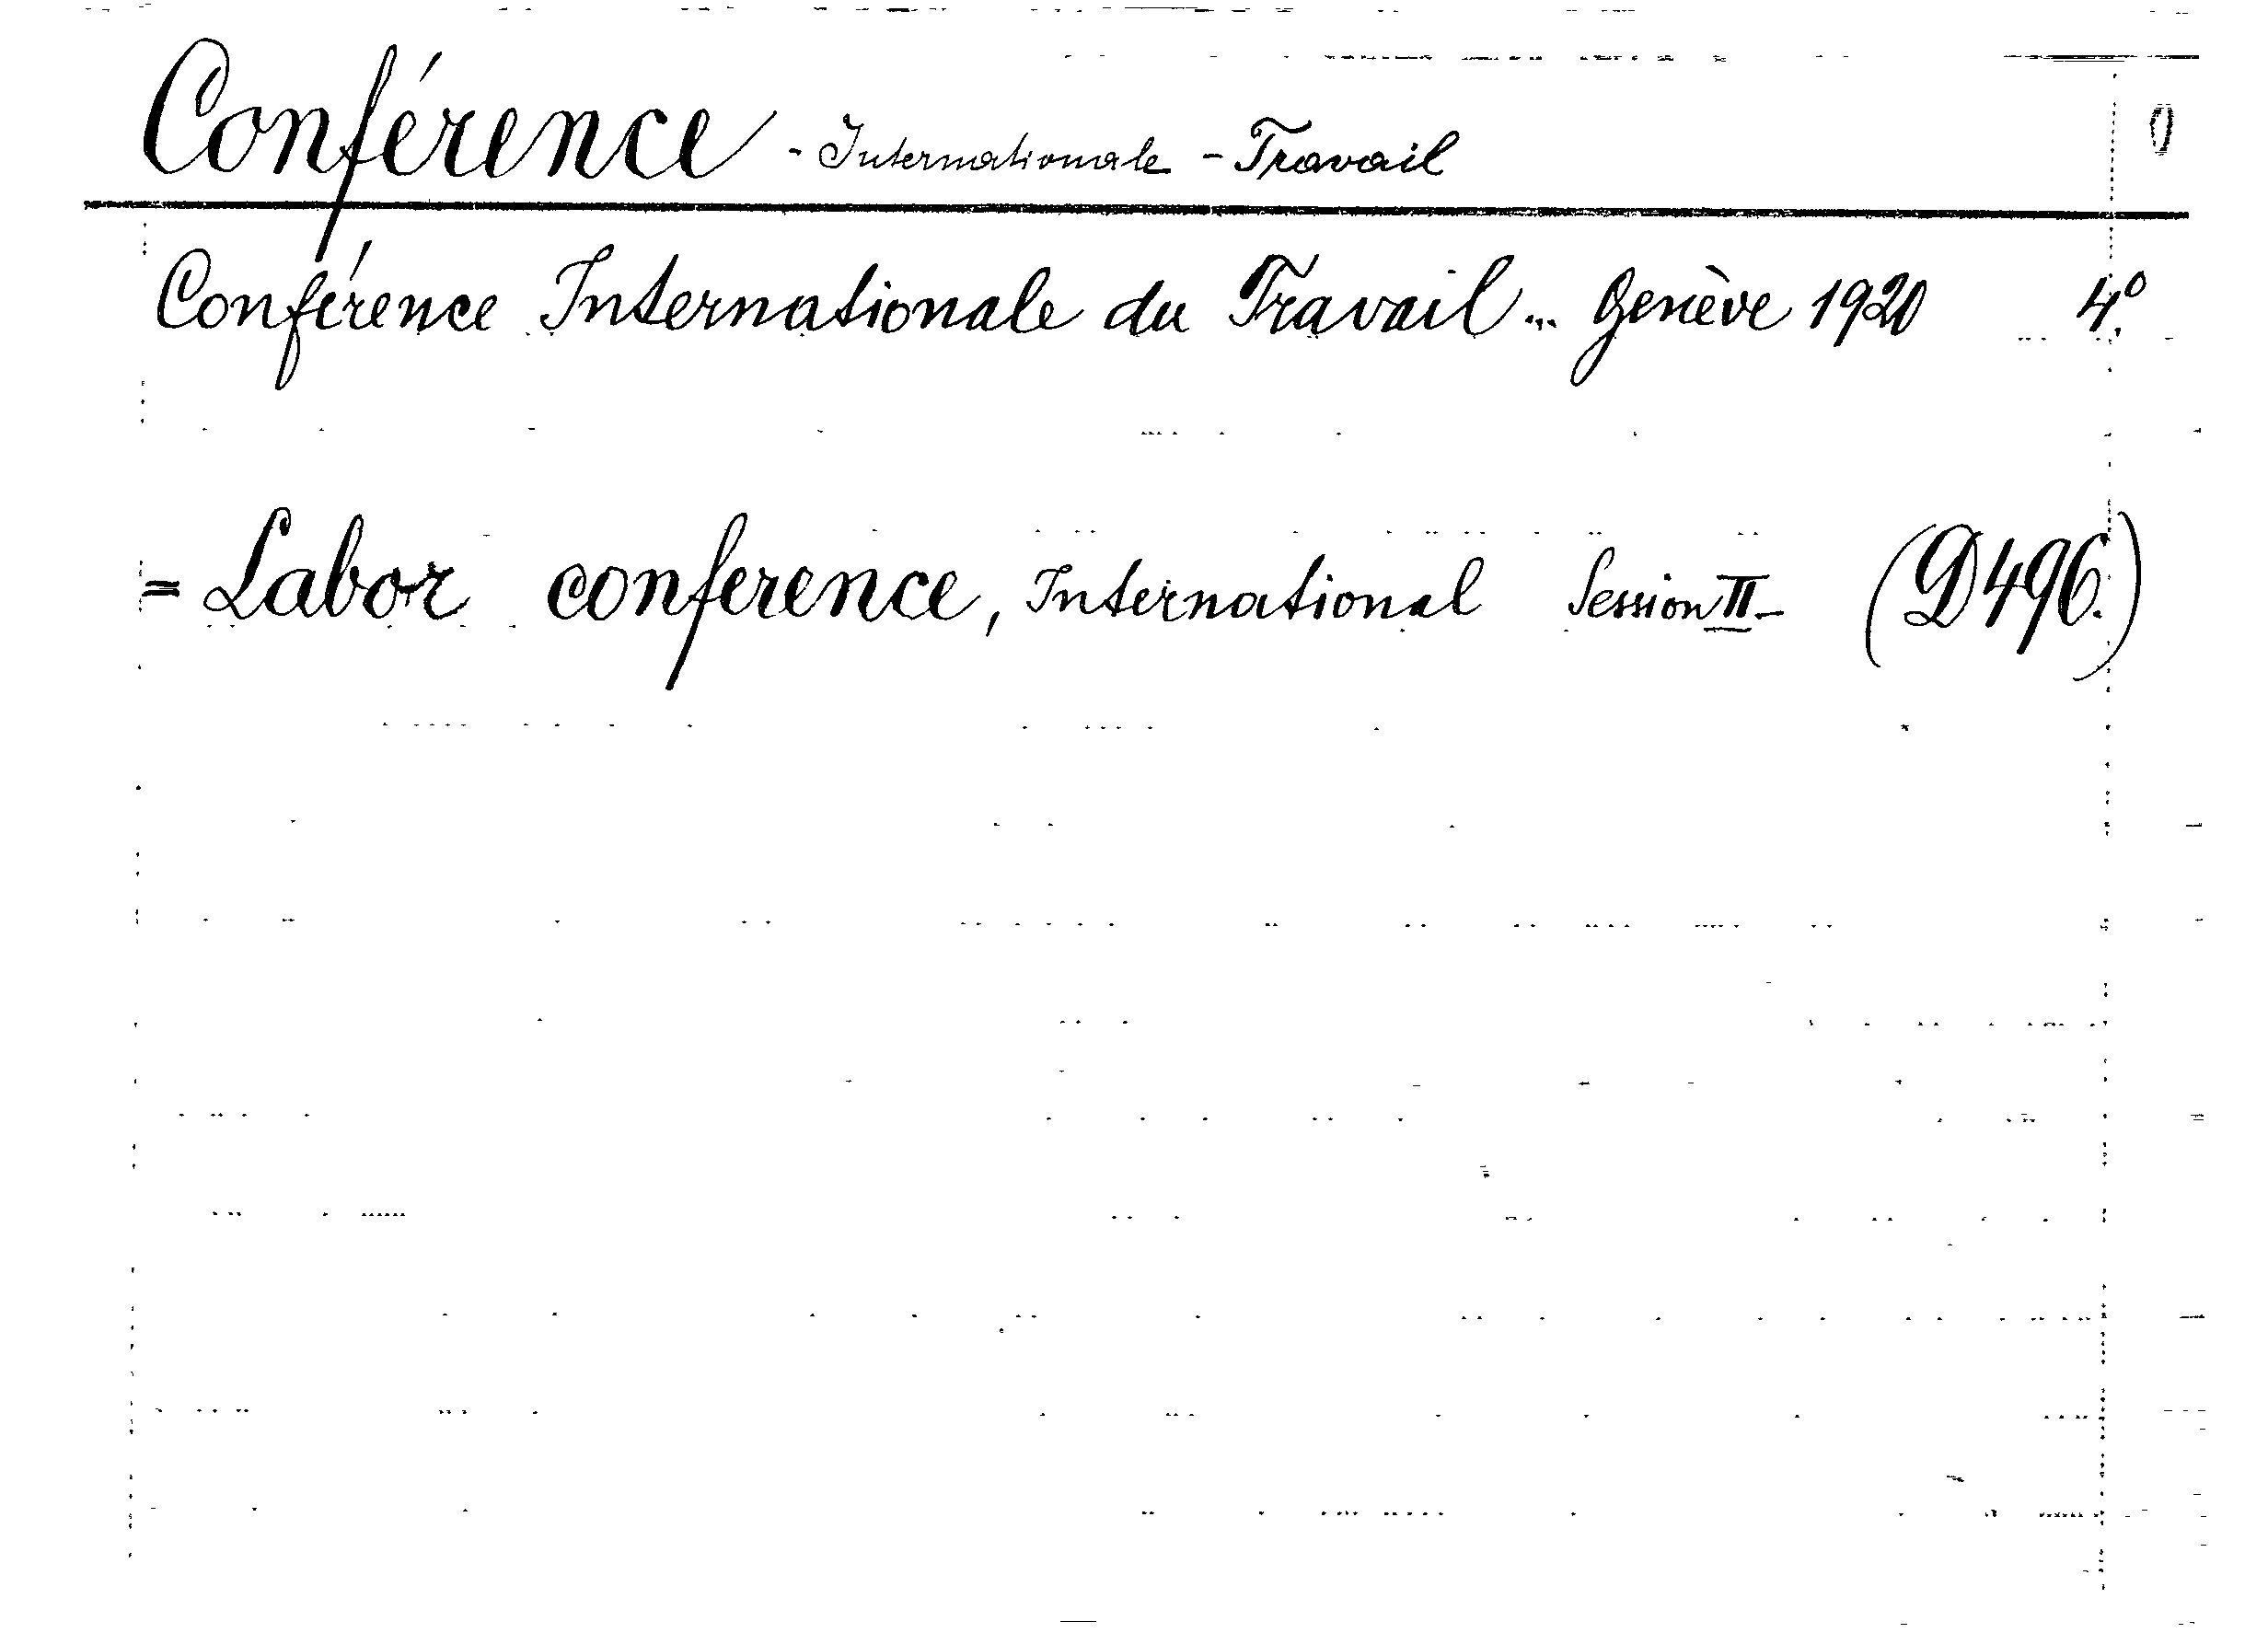 Conférence - Internationale - Travail 0
Conférence Internationale du Travail... Genève 1920 4.º
= Labor conference, International Session II - (D496.)